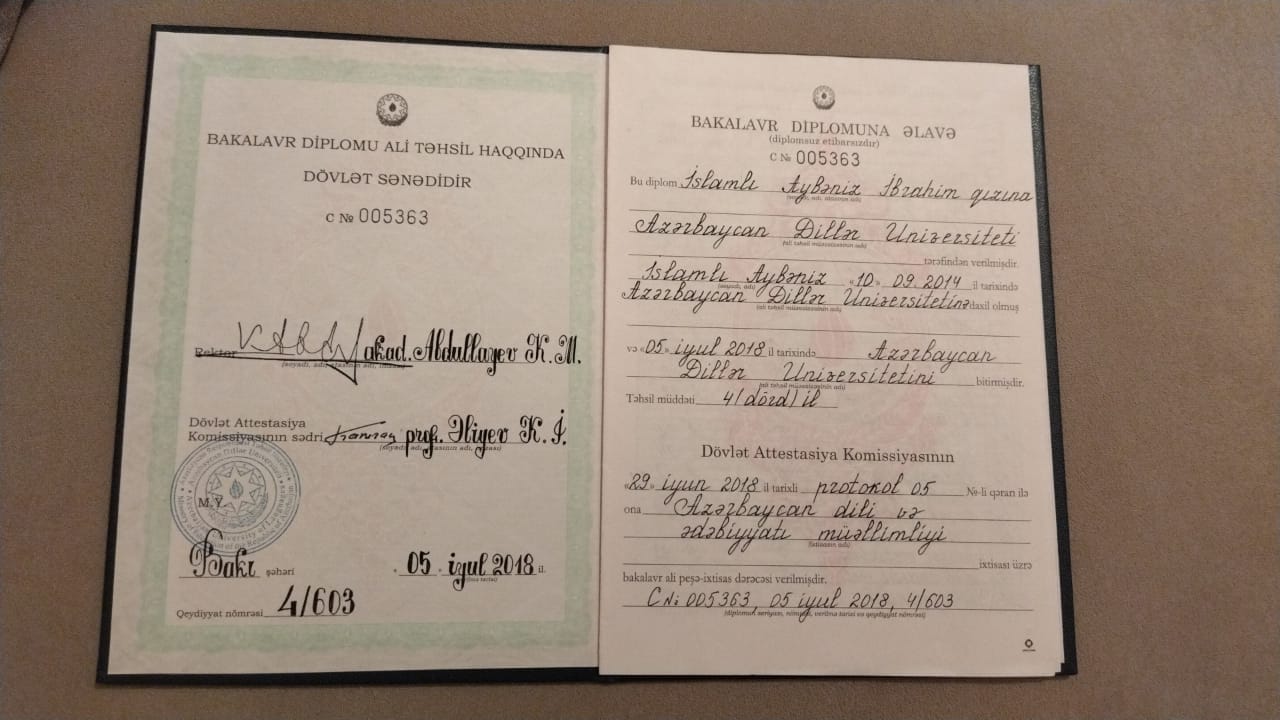 BAKALAVR DİPLOMU ALİ TƏHSİL HAQQINDA
DÖVLƏT SƏNƏDİDİR
C № 005363
Rektor akad. Abdullayev K.M.
(soyadı, adı, atasının adı, imzası)
Dövlət Attestasiya
Komissiyasının sədri prof. Əliyev K.İ.
(soyadı, adı, atasının adı, imzası)
M.Y.
Bakı şəhəri "05" iyul 2018 il.
Qeydiyyat nömrəsi 4/603
BAKALAVR DİPLOMUNA ƏLAVƏ
(diplomsuz etibarsızdır)
C № 005363
Bu diplom İslamlı Aybəniz İbrahim qızına
(soyadı, adı, atasının adı)
Azərbaycan Dillər Universiteti
(ali təhsil müəssisəsinin adı)
tərəfindən verilmişdir.
İslamlı Aybəniz «10» 09. 2014 il tarixində
(soyadı, adı)
Azərbaycan Dillər Universitetinə daxil olmuş
(ali təhsil müəssisəsinin adı)
və «05» iyul 2018 il tarixində Azərbaycan
Dillər Universitetini bitirmişdir.
(ali təhsil müəssisəsinin adı)
Təhsil müddəti 4(dörd) il
Dövlət Attestasiya Komissiyasının
«29» iyun 2018 il tarixli protokol 05 №-li qərarı ilə
ona Azərbaycan dili və
ədəbiyyatı müəllimliyi
(ixtisasın adı)
ixtisası üzrə
bakalavr ali peşə-ixtisas dərəcəsi verilmişdir.
C № 005363, 05 iyul 2018, 4/603
(diplomun seriyası, nömrəsi, verilmə tarixi və qeydiyyat nömrəsi)